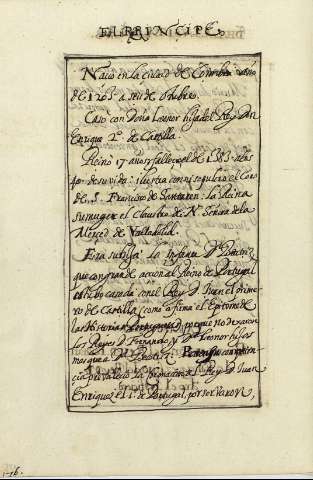 EL PRINCIPE,
Nacio en la ciudad de Coimbra año
de 1265. a seis de otubre,
Caso con Doña Leonor hija del Rey Don
Enrique 2º. de Castilla.
Reino 17 años, fallecio el de 1383. a los
de su vida: ilustra con su sepulcro el Con
de S. Francisco de Santaren: la Reina
su muger el claustro de Nª. Señora de la
Merced de Valladolid.
Fue su hija la Infanta Dª. Beatriz,
que con gran de accion al Reino de Portugal
estubo casada con el Rey D. Juan el prime
ro de Castilla (como afirma el Epitome de
las Historias Portuguesas) porque no dexaron
los Reyes D. Fernando, y Dª. Leonor hijos
mas que a Dª. Beatriz.
cia prevalecio la del Rey D. Juan
Enriquez el 1º. de Portugal, por ser varon,
1-16.